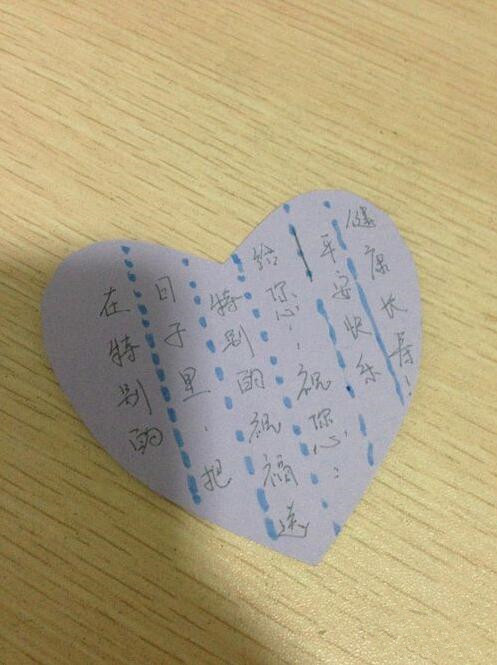 在特别的
日子里，把
特别的祝福送
给您：祝您：
平安快乐
健康长寿！